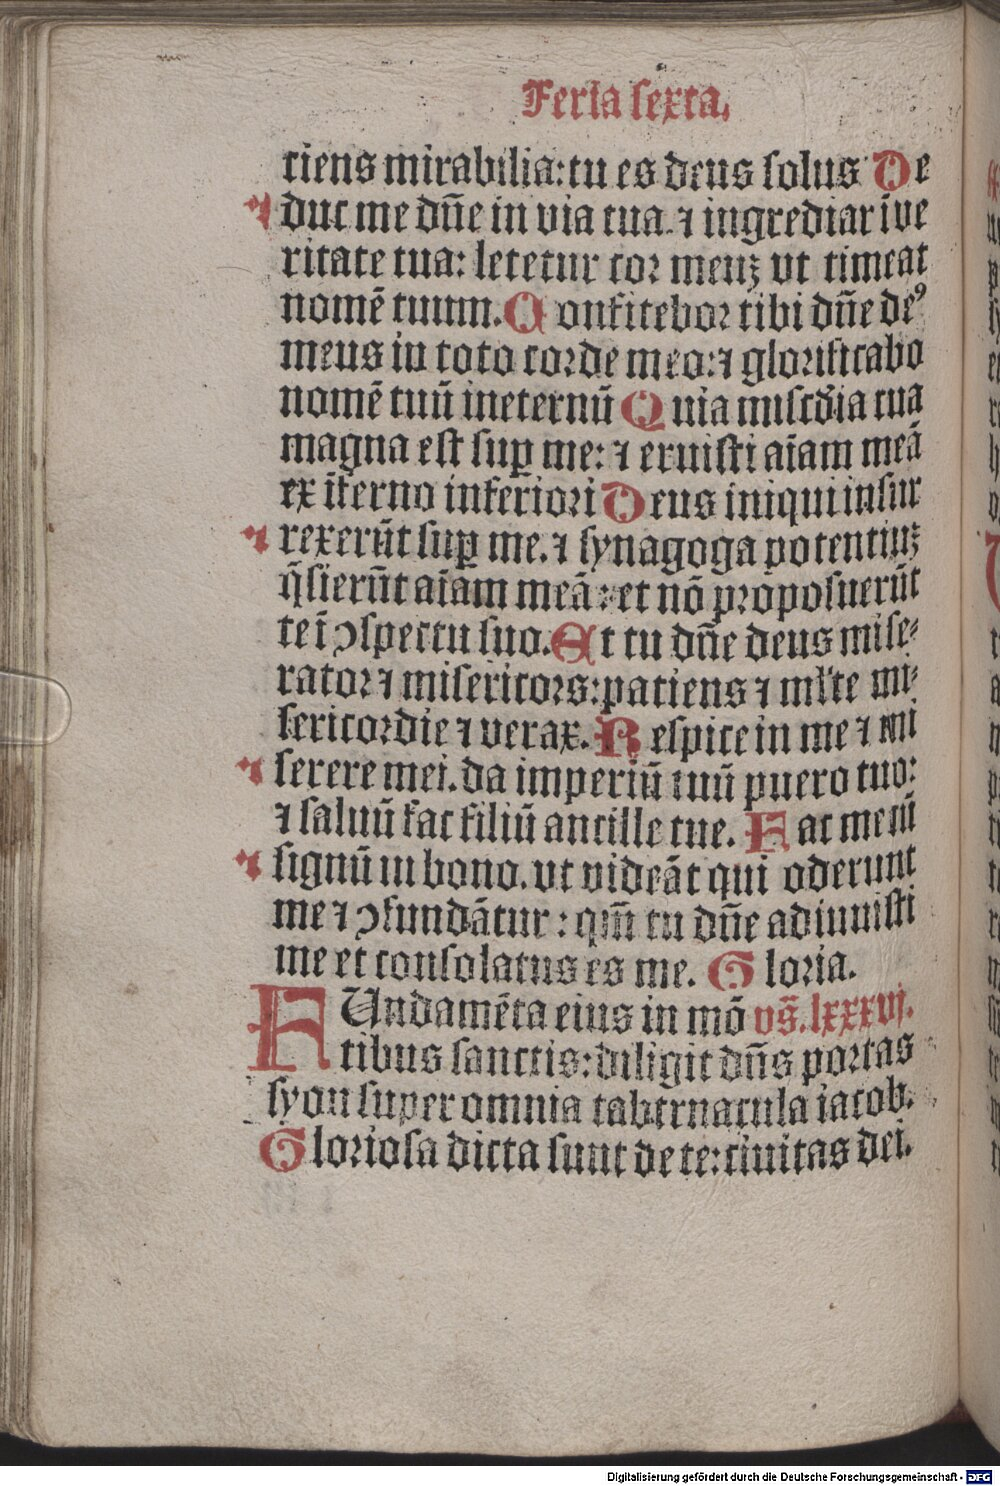 Feria sexta.
ciens mirabilia: tu es deus solus De
duc me dñe in via tua. ⁊ ingrediar ī ve
ritate tua: letetur cor meuȝ vt timeat
nomē tuum. Confitebor tibi dñe de⁹
meus in toto corde meo: ⁊ glorificabo
nomē tuū ineternū Quia misc̄dia tua
magna est suꝑ me: ⁊ eruisti aīam meā
ex īferno inferiori Deus iniqui insur
rexerūt suꝑ me. ⁊ synagoga potentiuȝ
q̄sierūt aīam meā: et nō proposuerūt
te ī ↄspectu suo. Et tu dñe deus mise-
rator ⁊ misericors: patiens ⁊ ml̄te mi-
sericordie ⁊ verax. Respice in me ⁊ mi
serere mei. da imperiū tuū puero tuo:
⁊ saluū fac filiū ancille tue. Fac mecū
signū in bono. vt videāt qui oderunt
me ⁊ ↄfundātur: qm̄ tu dñe adiuuisti
me et consolatus es me. Gloria.
FUndamēta eius in mō vs̄. lxxxvj.
tibus sanctis: diligit dñs portas
syon super omnia tabernacula iacob.
Gloriosa dicta sunt de te: ciuitas dei.
Digitalisierung gefördert durch die Deutsche Forschungsgemeinschaft - DFG